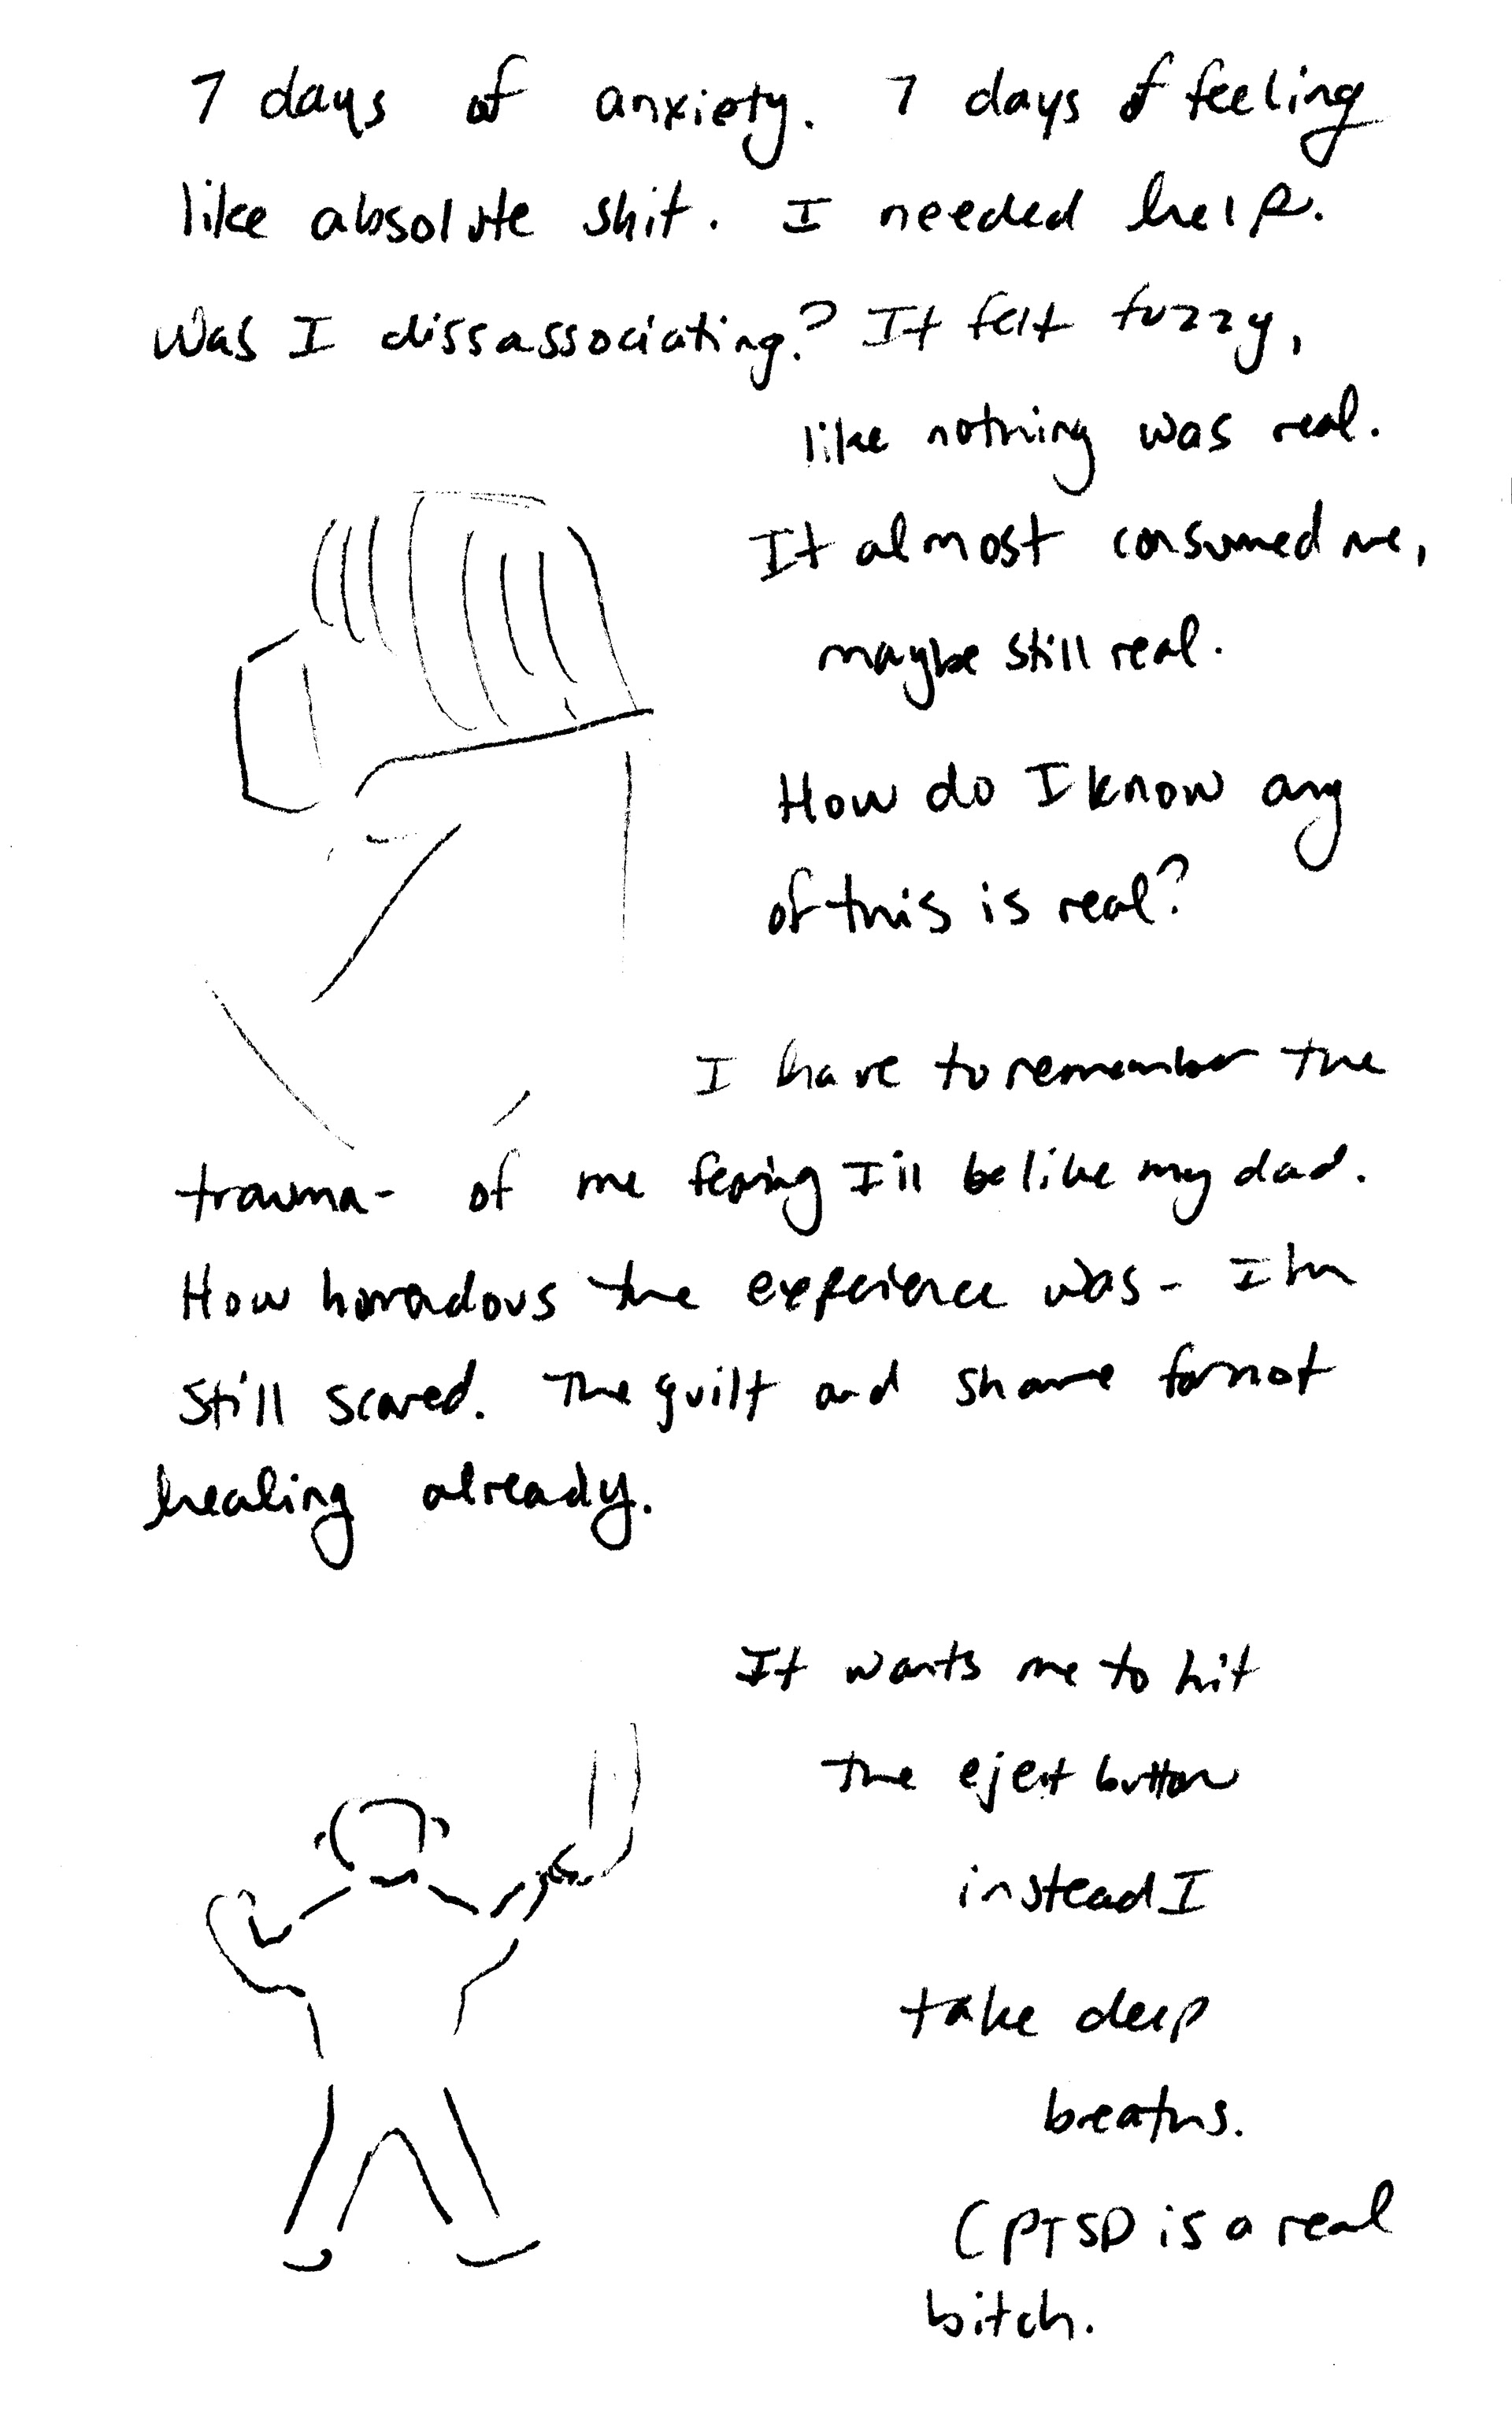 7 days of anxiety. 7 days of feeling
like absolute shit. I needed help.
Was I dissassociating? It felt fuzzy,
like nothing was real.
It almost consumed me,
maybe still real.
How do I know any
of this is real?
I have to remember the
trauma- of me fearing I'll be like my dad.
How horrendous the experience was - I'm
still scared. The guilt and shame for not
healing already.
It wants me to hit
the eject button
instead I
take deep
breaths.
CPTSD is a real
bitch.